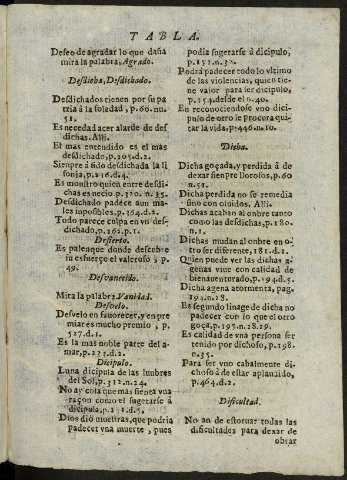 TABLA.
Deseo de agradar lo que daña
mira la palabra, Agrado.
Desdicha, Desdichado.
Desdichados tienen por su pa
tria á la soledad, p.60.nu.
51.
Es necedad acer alarde de des
dichas. Alli.
El mas entendido es el mas
desdichado, p.105.d.2.
Siempre á sido desdichada la li
sonja, p.216.d.4.
Es monstro quien entre desdi-
chas es necio p.320. n.35.
Desdichado padece aun ma-
les inposibles, p.364.d.2.
Todo parece culpa en vn des-
dichado, p.262.p.1.
Desierto.
Es palenque donde descubre
su esfuerço el valeroso, p.
49.
Desvanecido.
Mira la palabra, Vanidad.
Desvelo.
Desvelo en favorecer, y en pre
miar es mucho premio, p.
327.d.5.
Es la mas noble parte del a-
mar, p.223.d.2.
Dicipulo.
Luna dicipula de las lunbres
del Sol, p.312.n.24.
No ay cosa que mas sienta vna
raçon como el sugetarse á
dicipula, p.151.d.5.
Dios dió muestras, que podria
padecer vna muerte, pues
podia sugetarse á dicipulo,
p.151.n.38.
Podrá padecer todo lo vltimo
de las violencias, quien tie-
ne valor para ser dicipulo,
p.154.desde el n.40.
En reconociendose vno dici-
pulo de otro le procura qui-
tar la vida, p.446.n.10.
Dicha.
Dicha goçada, y perdida á de
dexar sienpre llorosos, p.60
n.51.
Dicha perdida no se remedia
sino con olvidos. Alli.
Dichas acaban al onbre tanto
como las desdichas, p.180.
n.1.
Dichas mudan al onbre en o-
tro ser diferente, 181.d.1.
Quien puede ver las dichas a-
genas vive con calidad de
bienaventorado, p.194.d.5.
Dicha agena atormenta, pag.
194.n.28.
Es segundo linage de dicha no
padecer con lo que el otro
goça, p.195.n.28.29.
Es calidad de vna persona ser
tenido por dichoso, p.198.
n.35.
Para ser vno cabalmente di-
choso á de estar aplaudido,
p.464.d.2.
Dificultad.
No an de estorvar todas las
dificultades para dexar de
obrar